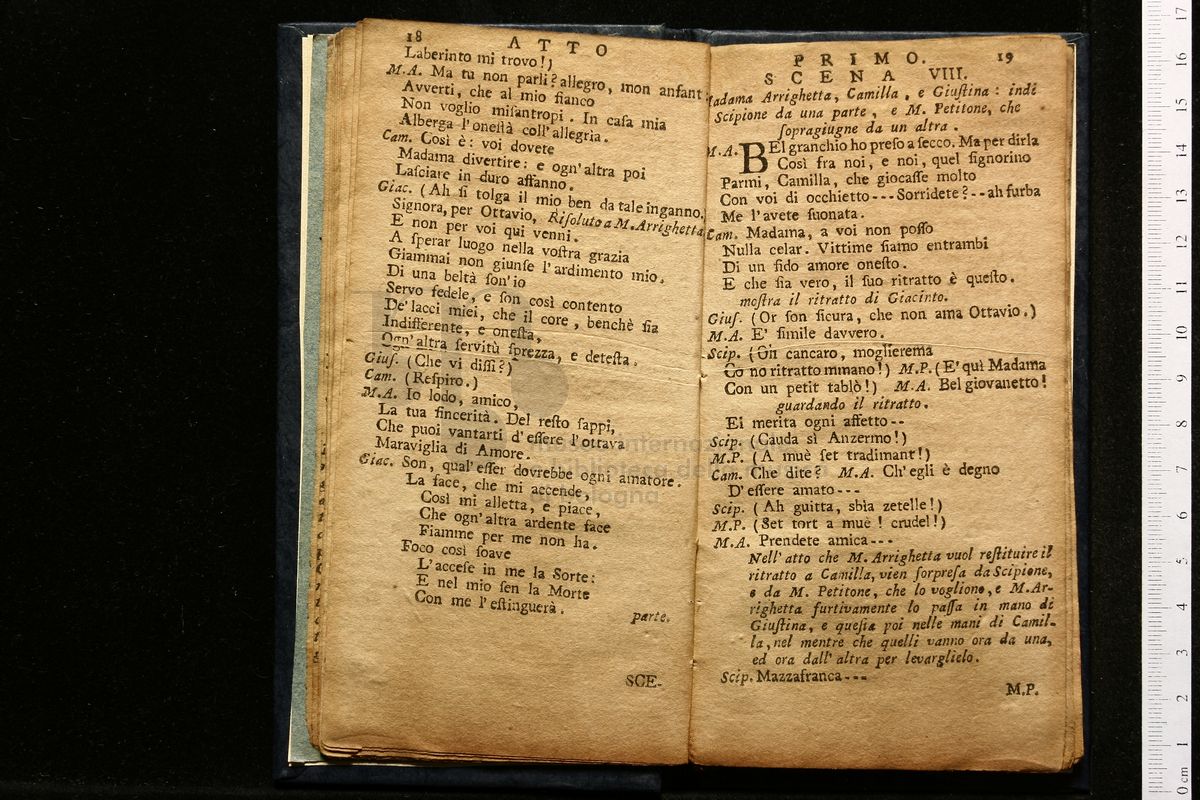 18 ATTO
Laberinto mi trovo!)
M.A. Ma tu non parli? allegro, mon anfant
Avverti, che al mio fianco
Non voglio miſantropi. In caſa mia
Alberga l'oneſtà coll'allegria.
Cam. Così è: voi dovete
Madama divertire: e ogn'altra poi
Laſciare in duro affanno.
Giac. (Ah ſi tolga il mio ben da tale inganno.)
Signora, per Ottavio, Riſoluto a M. Arrighetta
E non per voi qui venni.
A ſperar luogo nella voſtra grazia
Giammai non giunſe l'ardimento mio.
Di una beltà ſon'io
Servo fedele, e ſon così contento
De'lacci miei, che il core, benchè ſia
Indifferente, e oneſta,
Ogn'altra ſervitù ſprezza, e deteſta.
Giuſ. (Che vi diſſi?)
Cam. (Reſpiro.)
M.A. Io lodo, amico,
La tua ſincerità. Del reſto ſappi,
Che puoi vantarti d'eſſere l'ottava
Maraviglia di Amore.
Giac. Son, qual'eſſer dovrebbe ogni amatore.
La face, che mi accende,
Così mi alletta, e piace,
Che ogn'altra ardente face
Fiamme per me non ha.
Foco così ſoave
L'acceſe in me la Sorte:
E nel mio ſen la Morte
Con me l'eſtinguerà.
parte.
SCE-
PRIMO. 19
SCENA VIII.
Madama Arrighetta, Camilla, e Giuſtina: indi
Scipione da una parte, e M. Petitone, che
ſopragiugne da un altra.
M.A. BEl granchio ho preſo a ſecco. Ma per dirla
Così fra noi, e noi, quel ſignorino
Parmi, Camilla, che giocaſſe molto
Con voi di occhietto---Sorridete?--ah furba
Me l'avete ſuonata.
Cam. Madama, a voi non poſſo
Nulla celar. Vittime ſiamo entrambi
Di un fido amore oneſto.
E che ſia vero, il ſuo ritratto è queſto.
moſtra il ritratto di Giacinto.
Giuſ. (Or ſon ſicura, che non ama Ottavio.)
M.A. E' ſimile davvero.
Scip. (Oh cancaro, moglierema
Co no ritratto mmano!) M.P. (E'quì Madama
Con un petit tablò!) M.A. Bel giovanetto!
guardando il ritratto.
Ei merita ogni affetto--
Scip. (Cauda sì Anzermo!)
M.P. (A muè ſet tradimant!)
Cam. Che dite? M.A. Ch'egli è degno
D'eſſere amato---
Scip. (Ah guitta, sbìa zetelle!)
M.P. (Set tort a muè! crudel!)
M.A. Prendete amica---
Nell'atto che M. Arrighetta vuol reſtituire il
ritratto a Camilla, vien ſorpreſa da Scipione,
e da M. Petitone, che lo vogliono, e M. Ar-
righetta furtivamente lo paſſa in mano di
Giuſtina, e queſta poi nelle mani di Camil-
la, nel mentre che quelli vanno ora da una,
ed ora dall'altra per levarglielo.
Scip. Mazzafranca---
M.P.